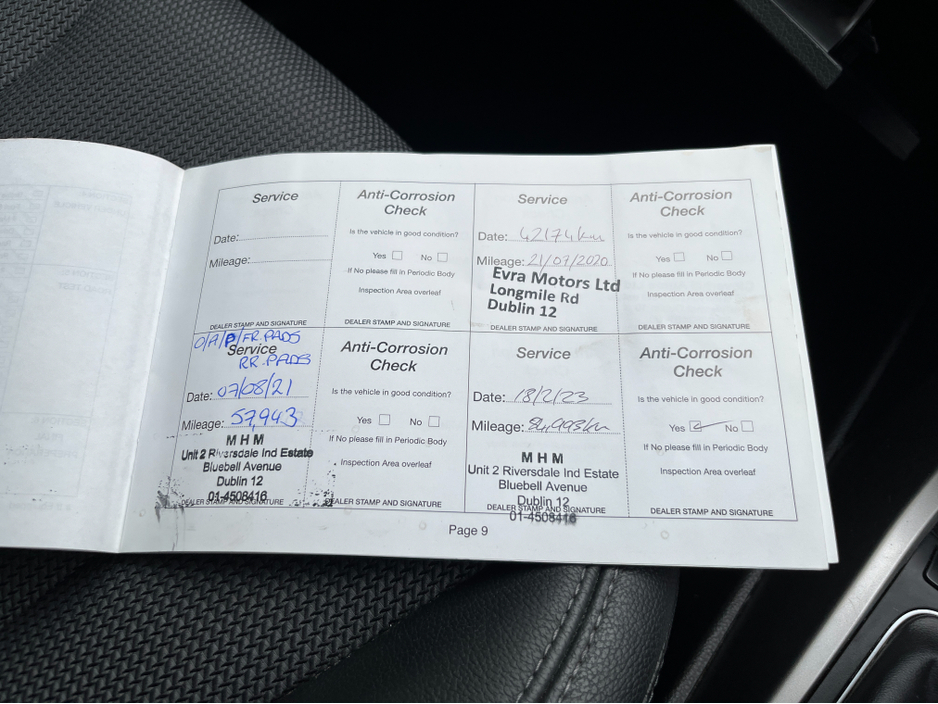 Service
Date:
Mileage:
DEALER STAMP AND SIGNATURE
Anti-Corrosion
Check
Is the vehicle in good condition?
Yes No
If No please fill in Periodic Body
Inspection Area overleaf
DEALER STAMP AND SIGNATURE
Service
Date: 42174km
Mileage: 21/07/2020
Evra Motors Ltd
Longmile Rd
Dublin 12
DEALER STAMP AND SIGNATURE
Anti-Corrosion
Check
Is the vehicle in good condition?
Yes No
If No please fill in Periodic Body
Inspection Area overleaf
DEALER STAMP AND SIGNATURE
O/A/P/FR.PADS
Service
RR.PADS
Date: 07/08/21
Mileage: 57,943
M H M
Unit 2 Riversdale Ind Estate
Bluebell Avenue
Dublin 12
01-4508416
DEALER STAMP AND SIGNATURE
Anti-Corrosion
Check
Is the vehicle in good condition?
Yes No
If No please fill in Periodic Body
Inspection Area overleaf
DEALER STAMP AND SIGNATURE
Service
Date: 18/2/23
Mileage:
M H M
Unit 2 Riversdale Ind Estate
Bluebell Avenue
Dublin 12
DEALER STAMP AND SIGNATURE
01-4508416
Anti-Corrosion
Check
Is the vehicle in good condition?
Yes No
If No please fill in Periodic Body
Inspection Area overleaf
DEALER STAMP AND SIGNATURE
Page 9